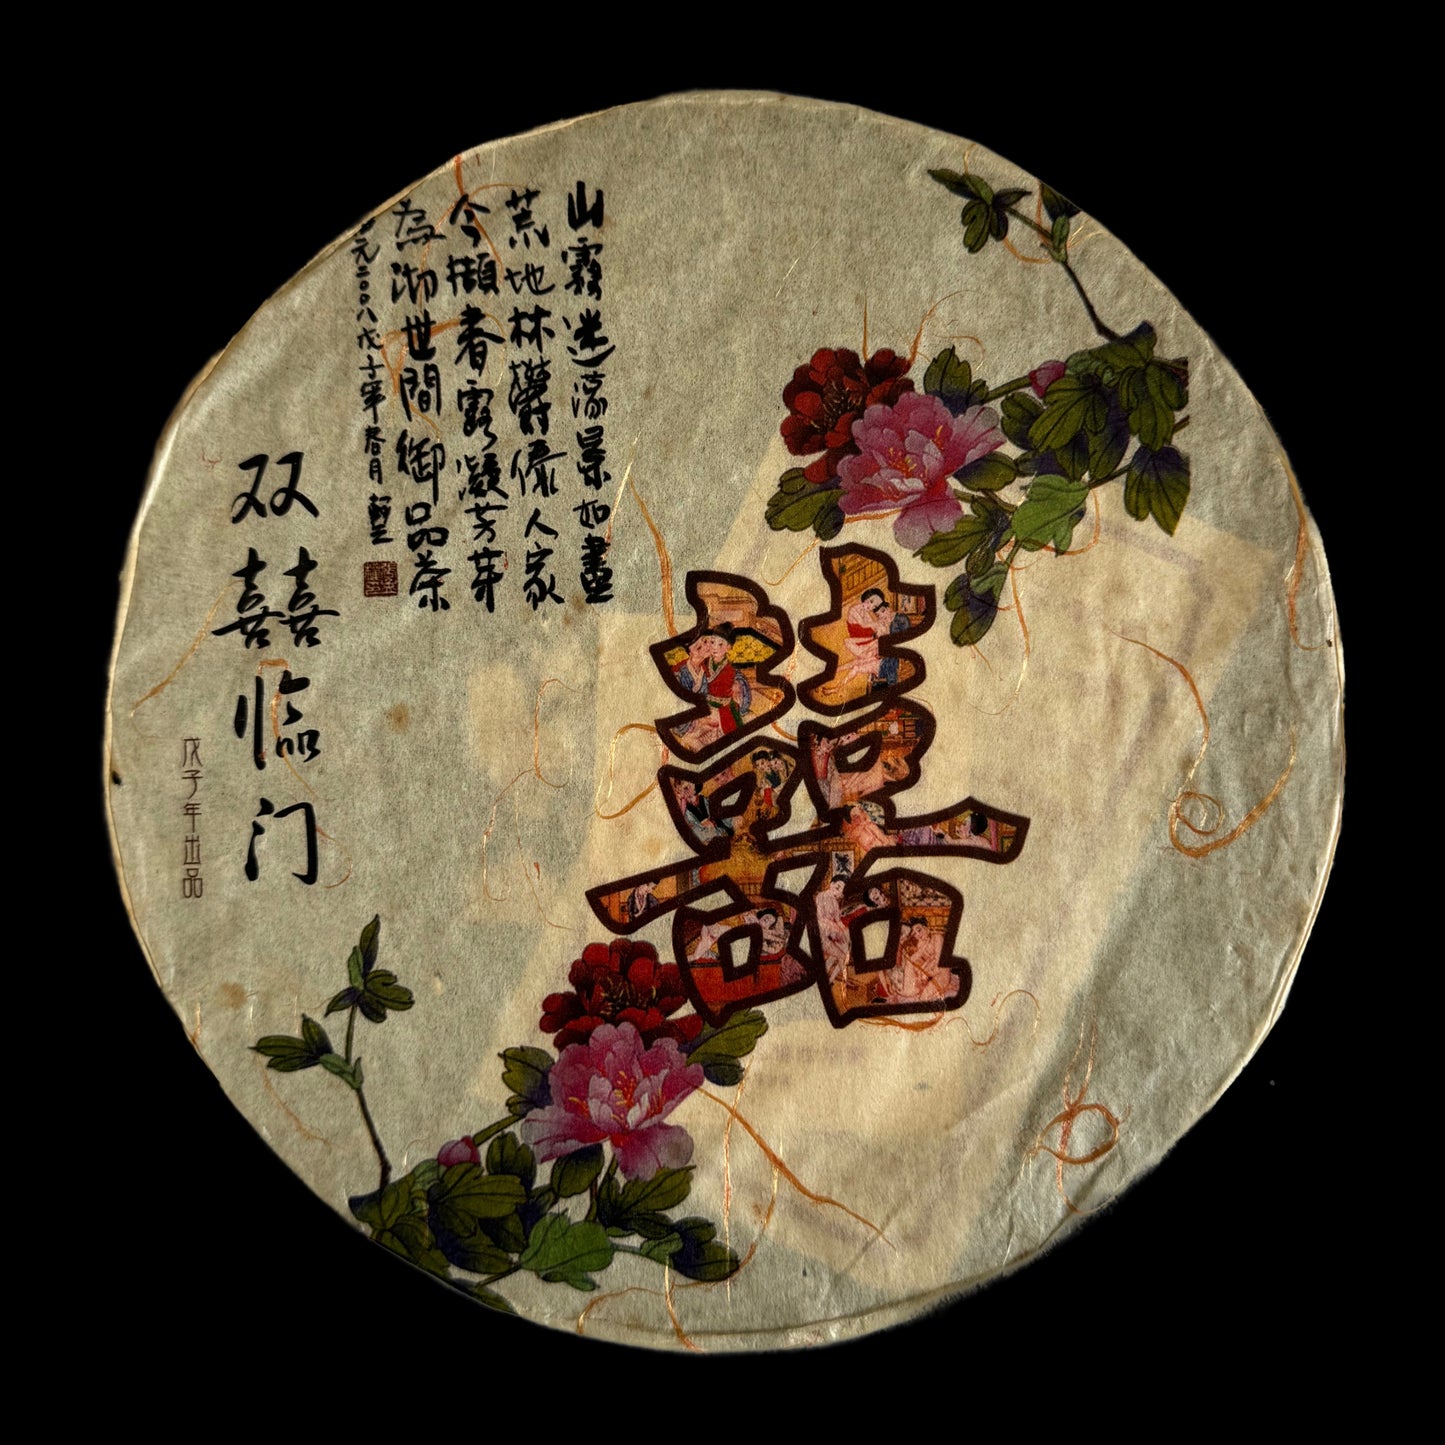 山霧迷蕩景如畫
荒地林欝儂人家
今擷春露凝芳芽
為沏世間御品茶
元二〇〇八戊子年春月
双囍临门
戊子年出品
囍